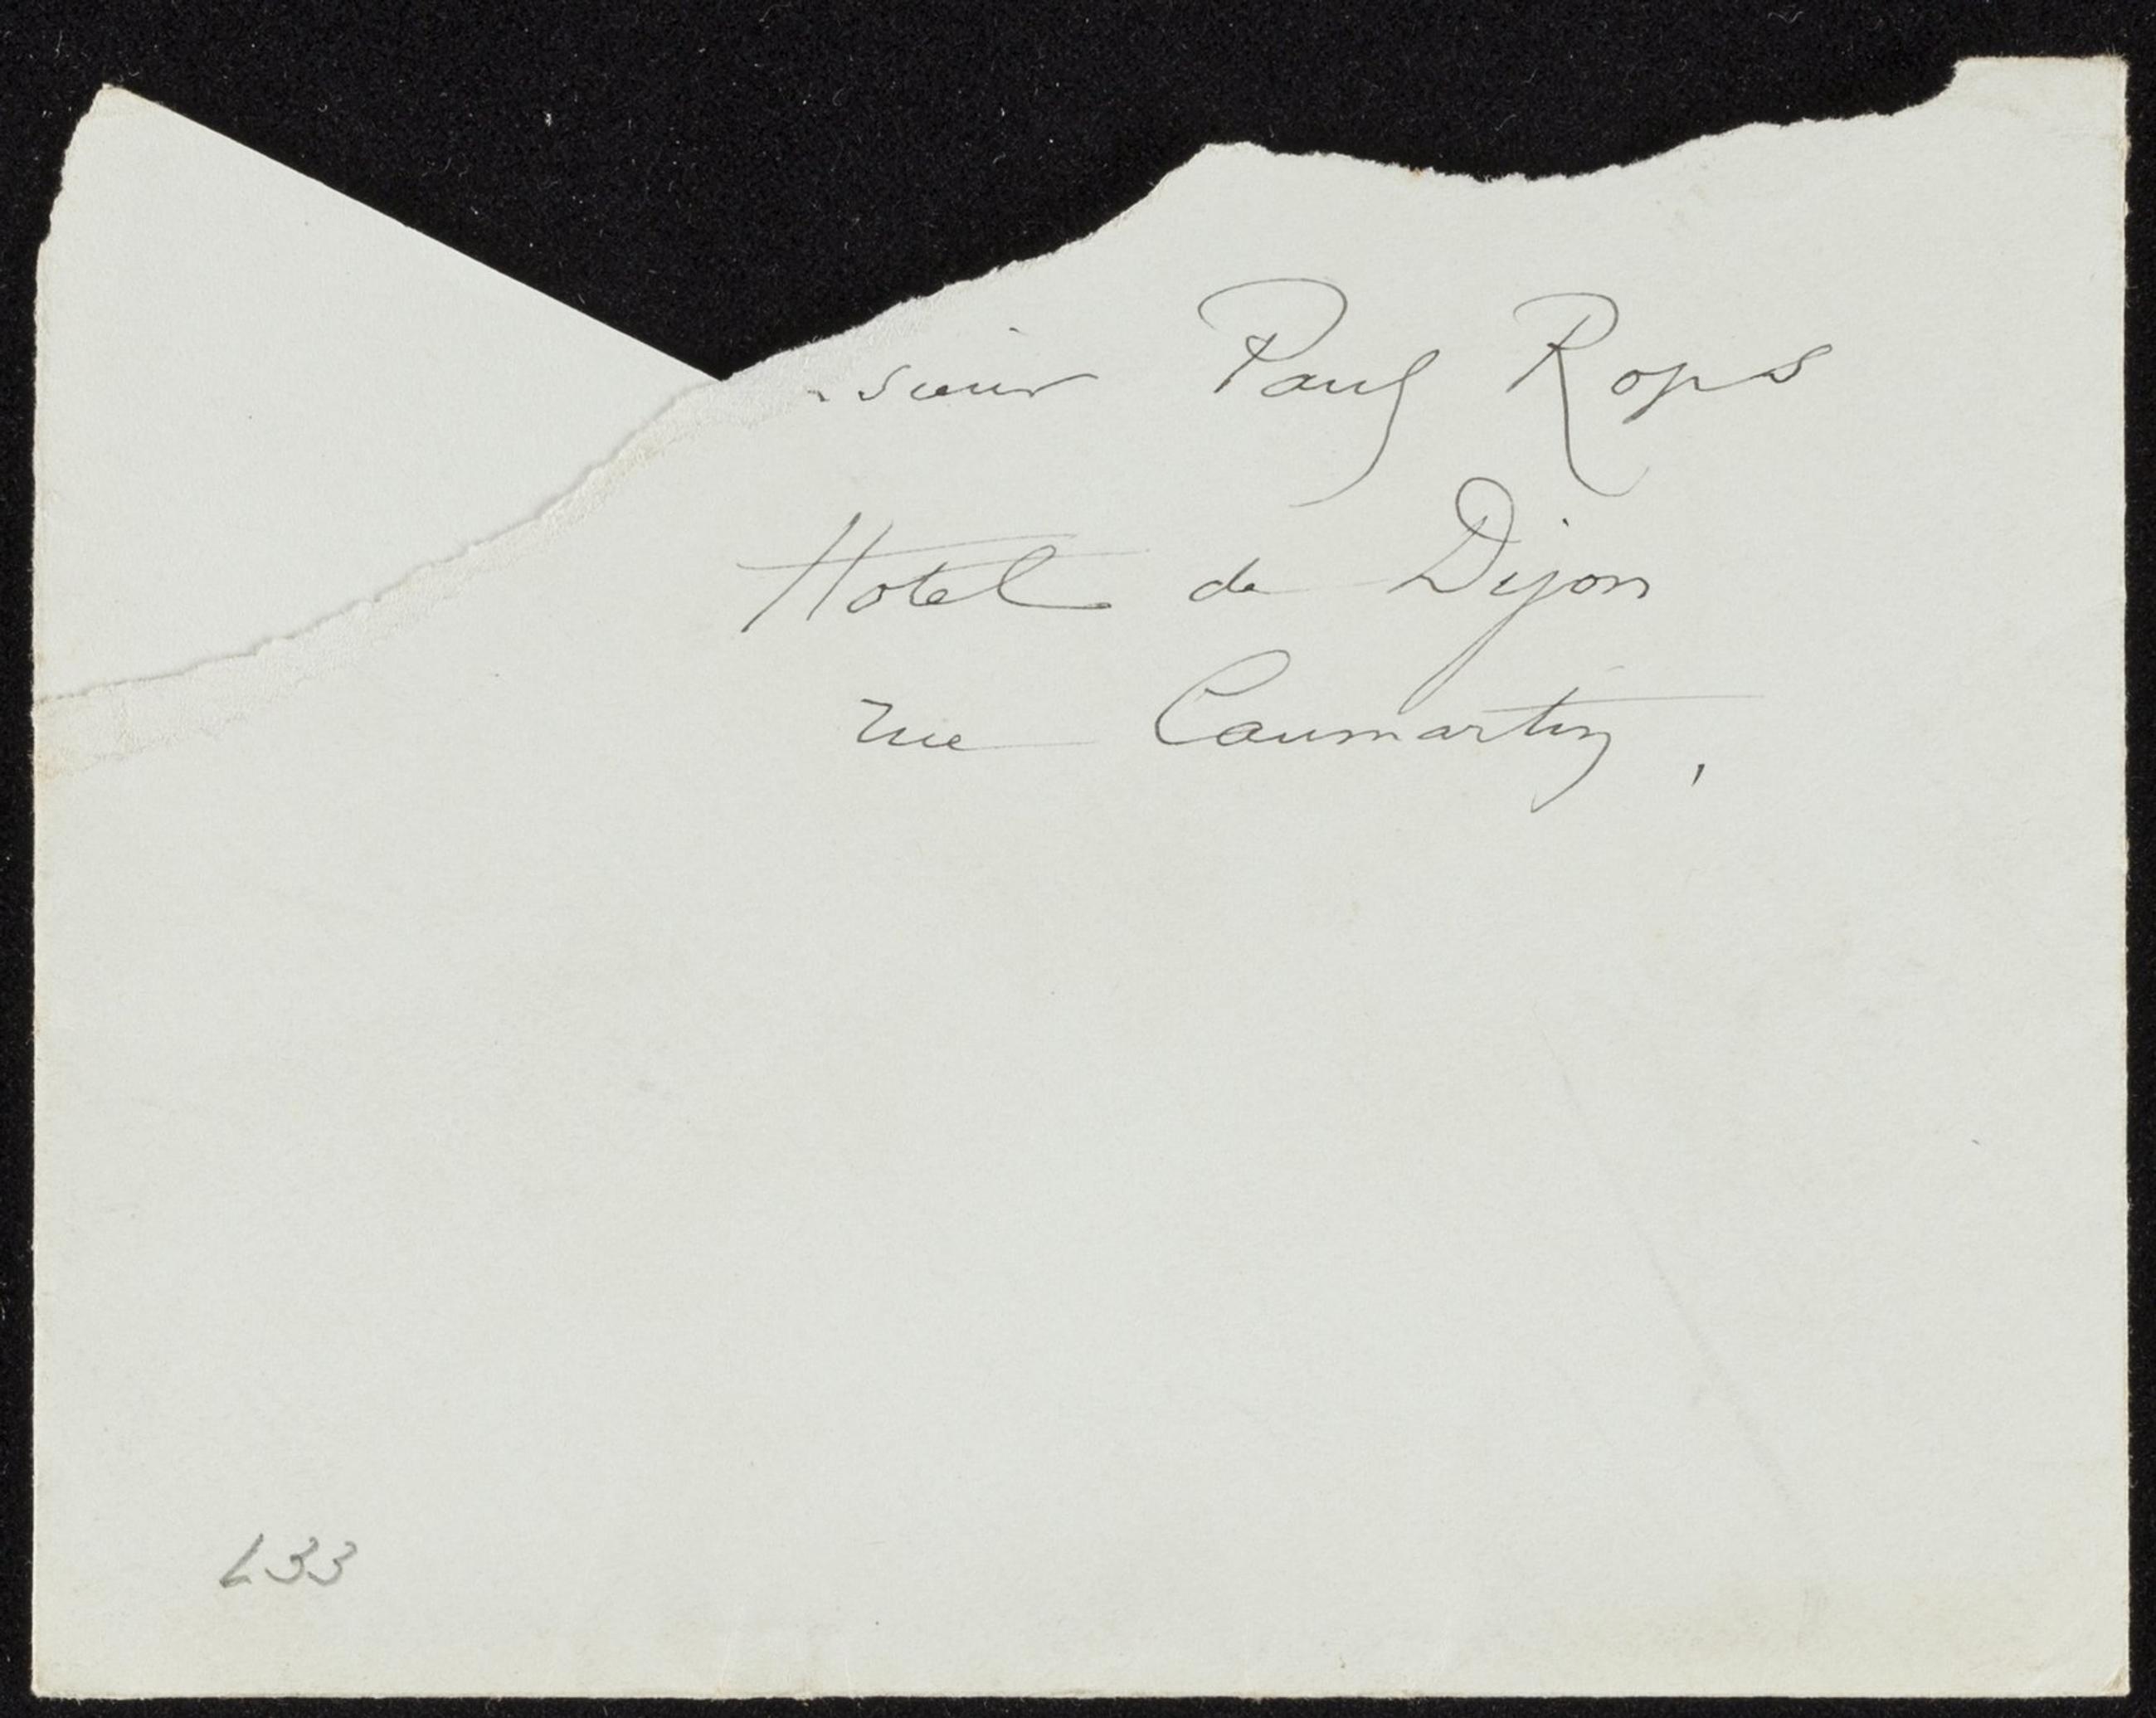 sieur Paul Rops
Hotel de Dijon
rue Caumartin,
L33